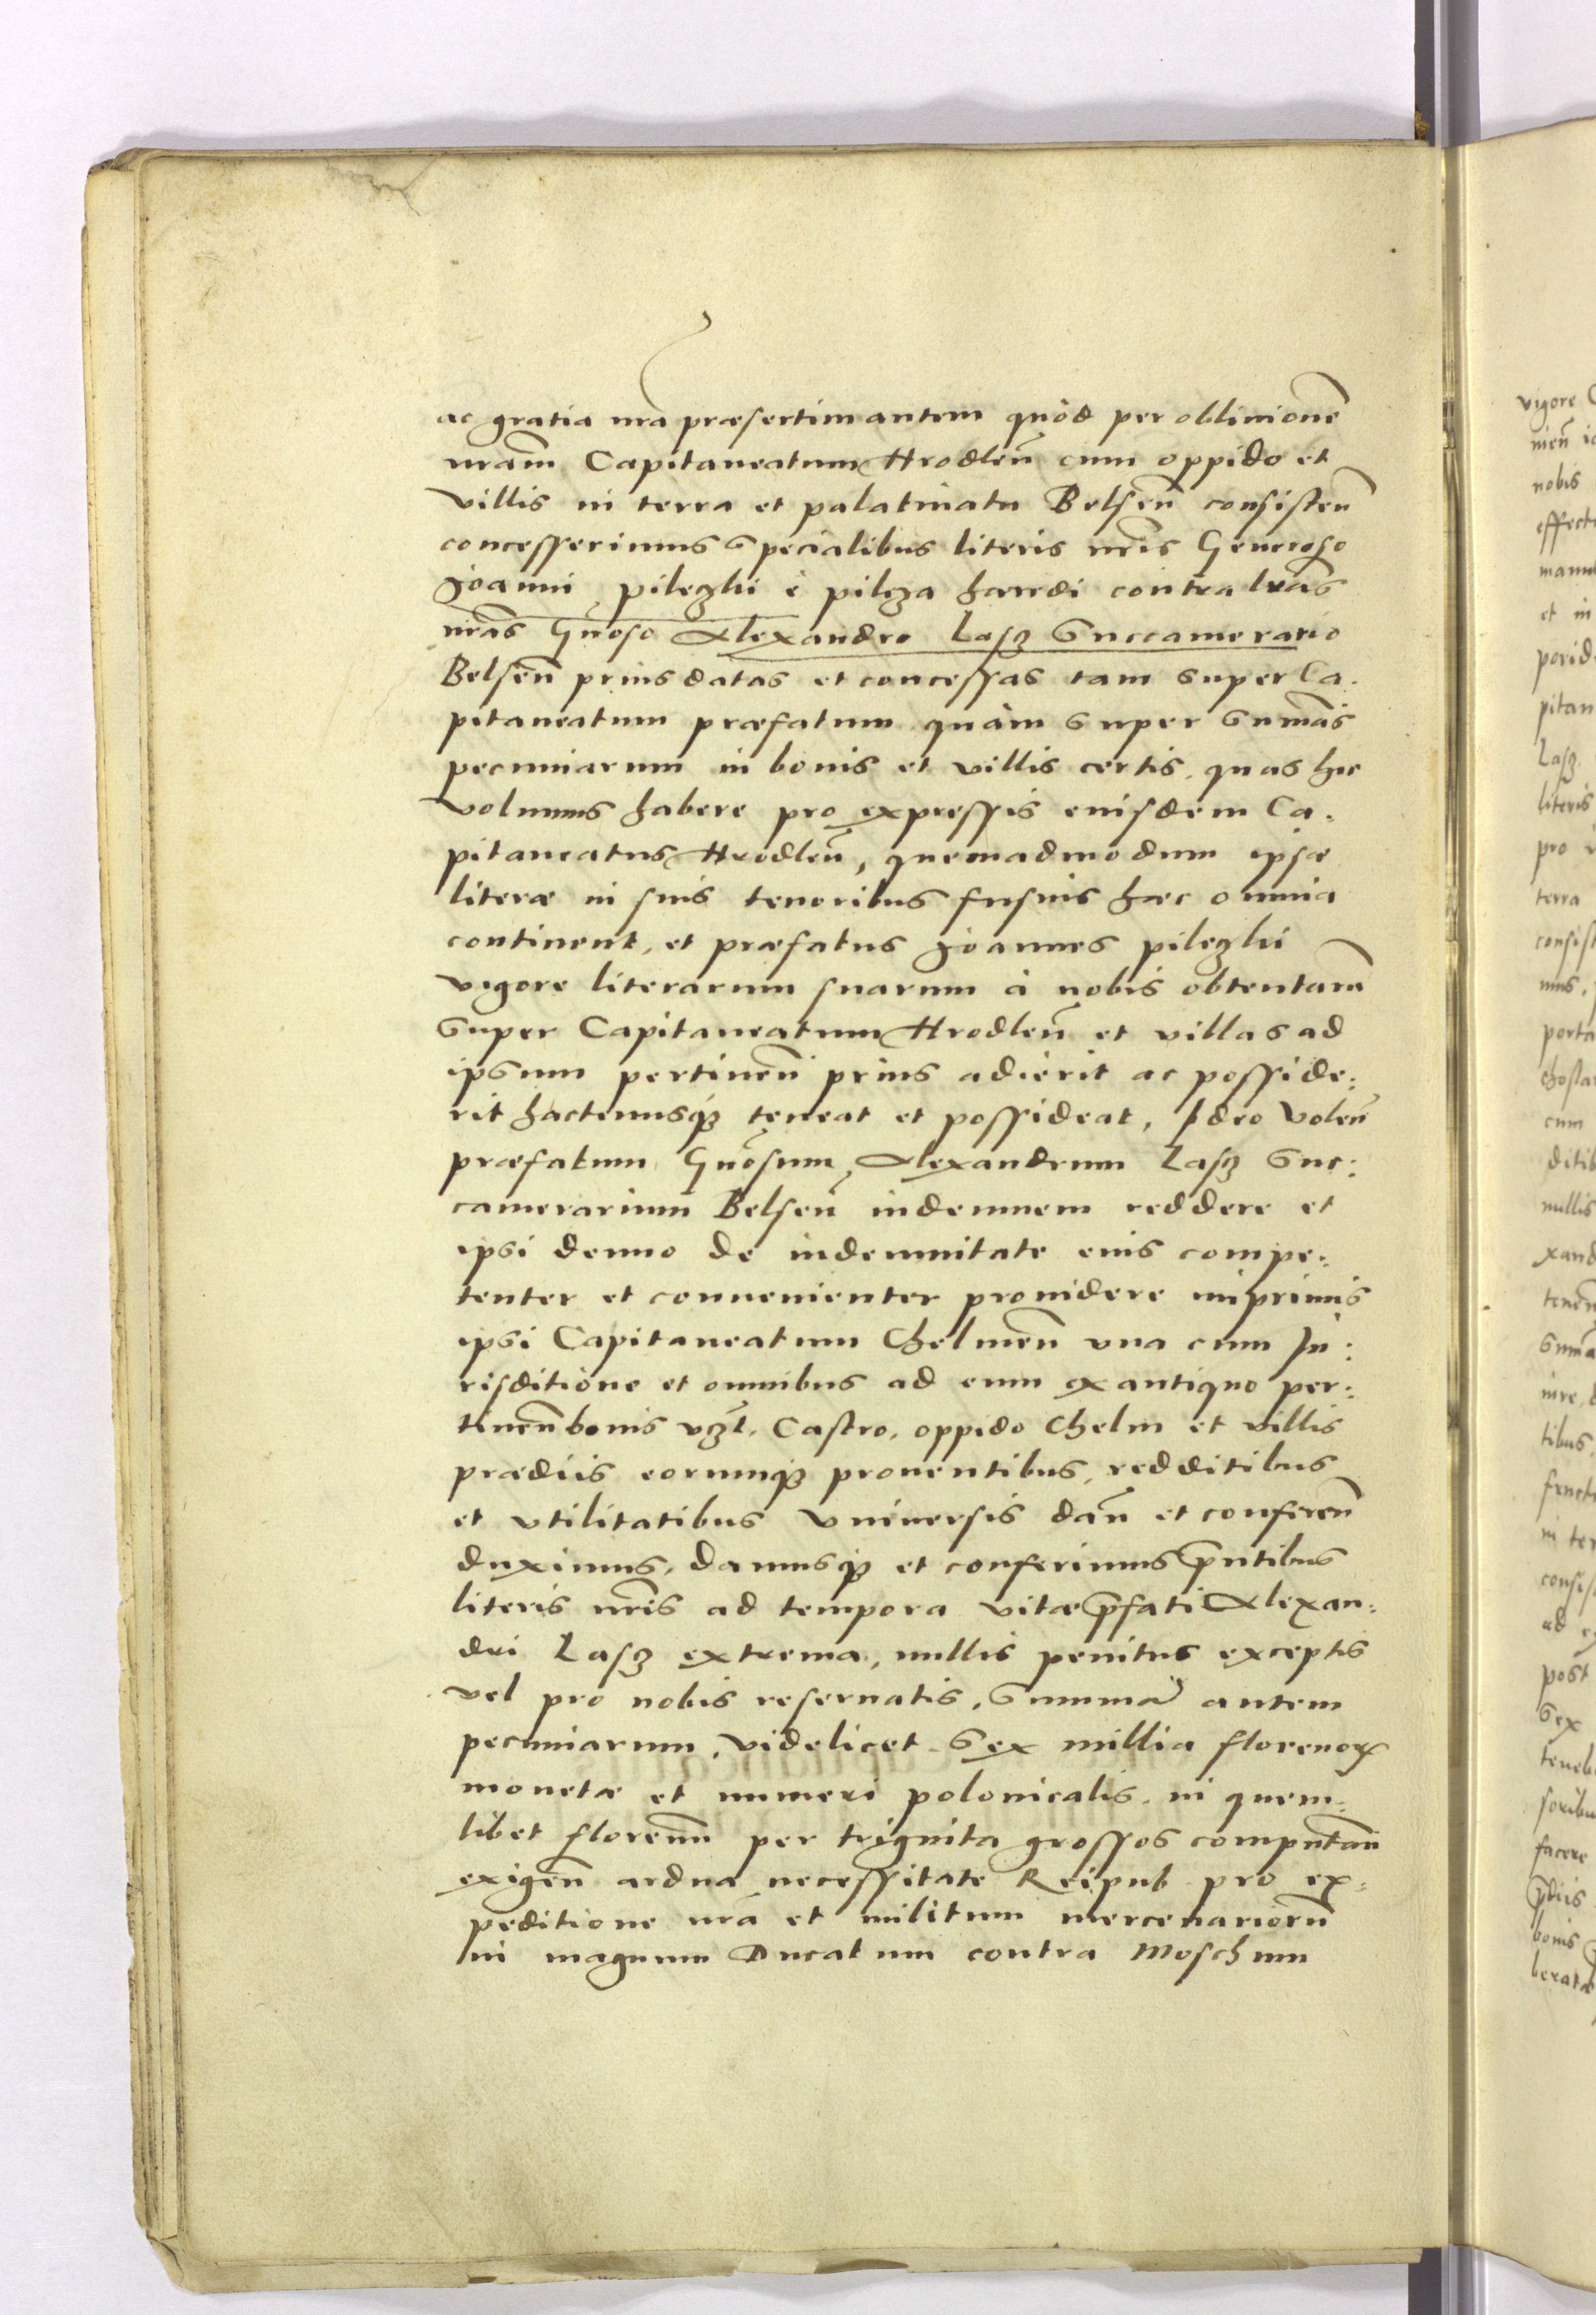 ac gratia nrã præsertim autem quòd per obliuionẽ
nrãm Capitaneatum Hrodleñ cum oppido et
villis in terra et palatinatu Belseñ consisteñ
concesserimus specialibus literis nrĩs Generoso
Joanni pileczki è pilcza hæredi contra lrãs
nrãs Gñoso Alexandro Lasz Succamerario
Belseñ prius datas et concessas tam super Ca.
pitaneatum præfatum quàm super Sum̃as
pecuniarum in bonis et villis certis, quas hic
volumus habere pro expressis eiusdem Ca.
pitaneatus Hrodleñ, quemadmodum ipsæ
literæ in suis tenoribus fusius hæc omnia
continent, et præfatus Joannes pileczki
vigore literarum suarum à nobis obtentarũ
super Capitaneatum Hrodleñ et villas ad
ipsum pertineñ prius adierit ac posside:
rit hactenusq₃ teneat et possideat, Ideo Voleñ
præfatum Gñosum Alexandrum Lasz Suc:
camerarium Belseñ indemnem reddere et
ipsi denuo de indemnitate eius compe:
tenter et conuenienter prouidere imprimis
ipsi Capitaneatum Chelmeñ vna cum Ju:
risditione et omnibus ad eum ex antiquo per:
tineñ bonis vz̃t. Castro, oppido Chelm et villis
prædiis eorumq₃ prouentibus, redditibus
et vtilitatibus Vniuersis dañ et confereñ
duximus, Damusq₃ et conferimus p̃ntibus
literis nrĩs ad tempora vitæ p̃fati Alexan:
dri Lasz extrema, nullis penitus exceptis
vel pro nobis reseruatis, Summã autem
pecuniarum, videlicet Sex millia florenoꝝ
monetæ et numeri polonicalis, in quem:
libet florenũ per triginta grossos computañ
exigeñ ardua necessitate Reipub. pro ex:
peditione nrã et militum mercenariorũ
in magnum Ducatum contra Moschum